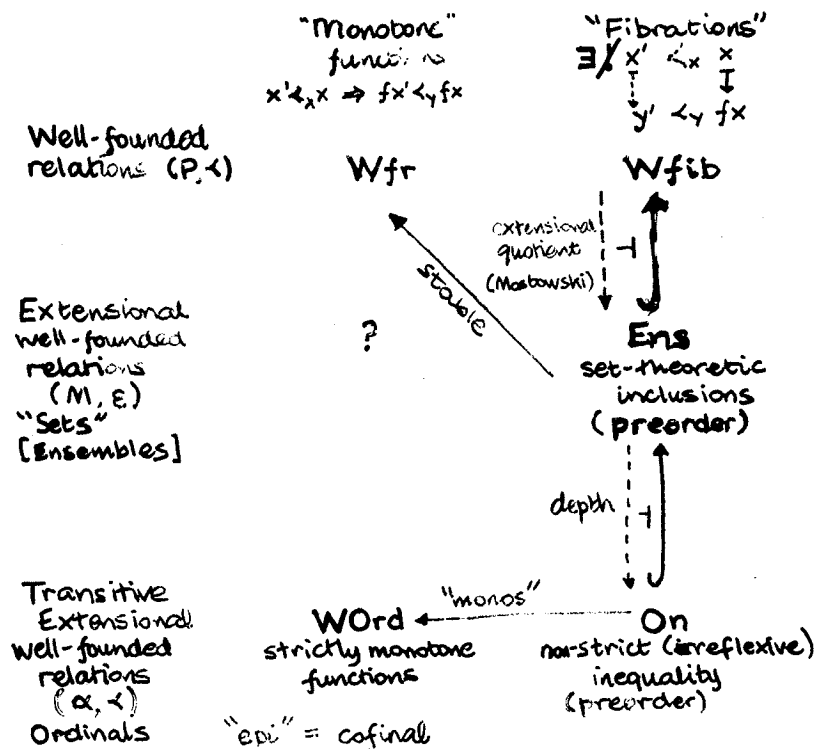 "Monotone"
functions
x'≺ₓx ⇒ fx'≺ᵧfx
"Fibrations"
∃! x' ≺ₓ x
y' ≺ᵧ fx
Well-founded
relations (P,≺)
Wfr
Wfib
extensional
quotient
(Mostowski)
⊣
stable
Extensional
well-founded
relations
(M, ε)
"Sets"
[Ensembles]
?
Ens
set-theoretic
inclusions
(preorder)
depth
⊣
Transitive
Extensional
well-founded
relations
(α, ≺)
Ordinals
WOrd
strictly monotone
functions
"monos"
On
non-strict (reflexive)
inequality
(preorder)
"epi" = cofinal